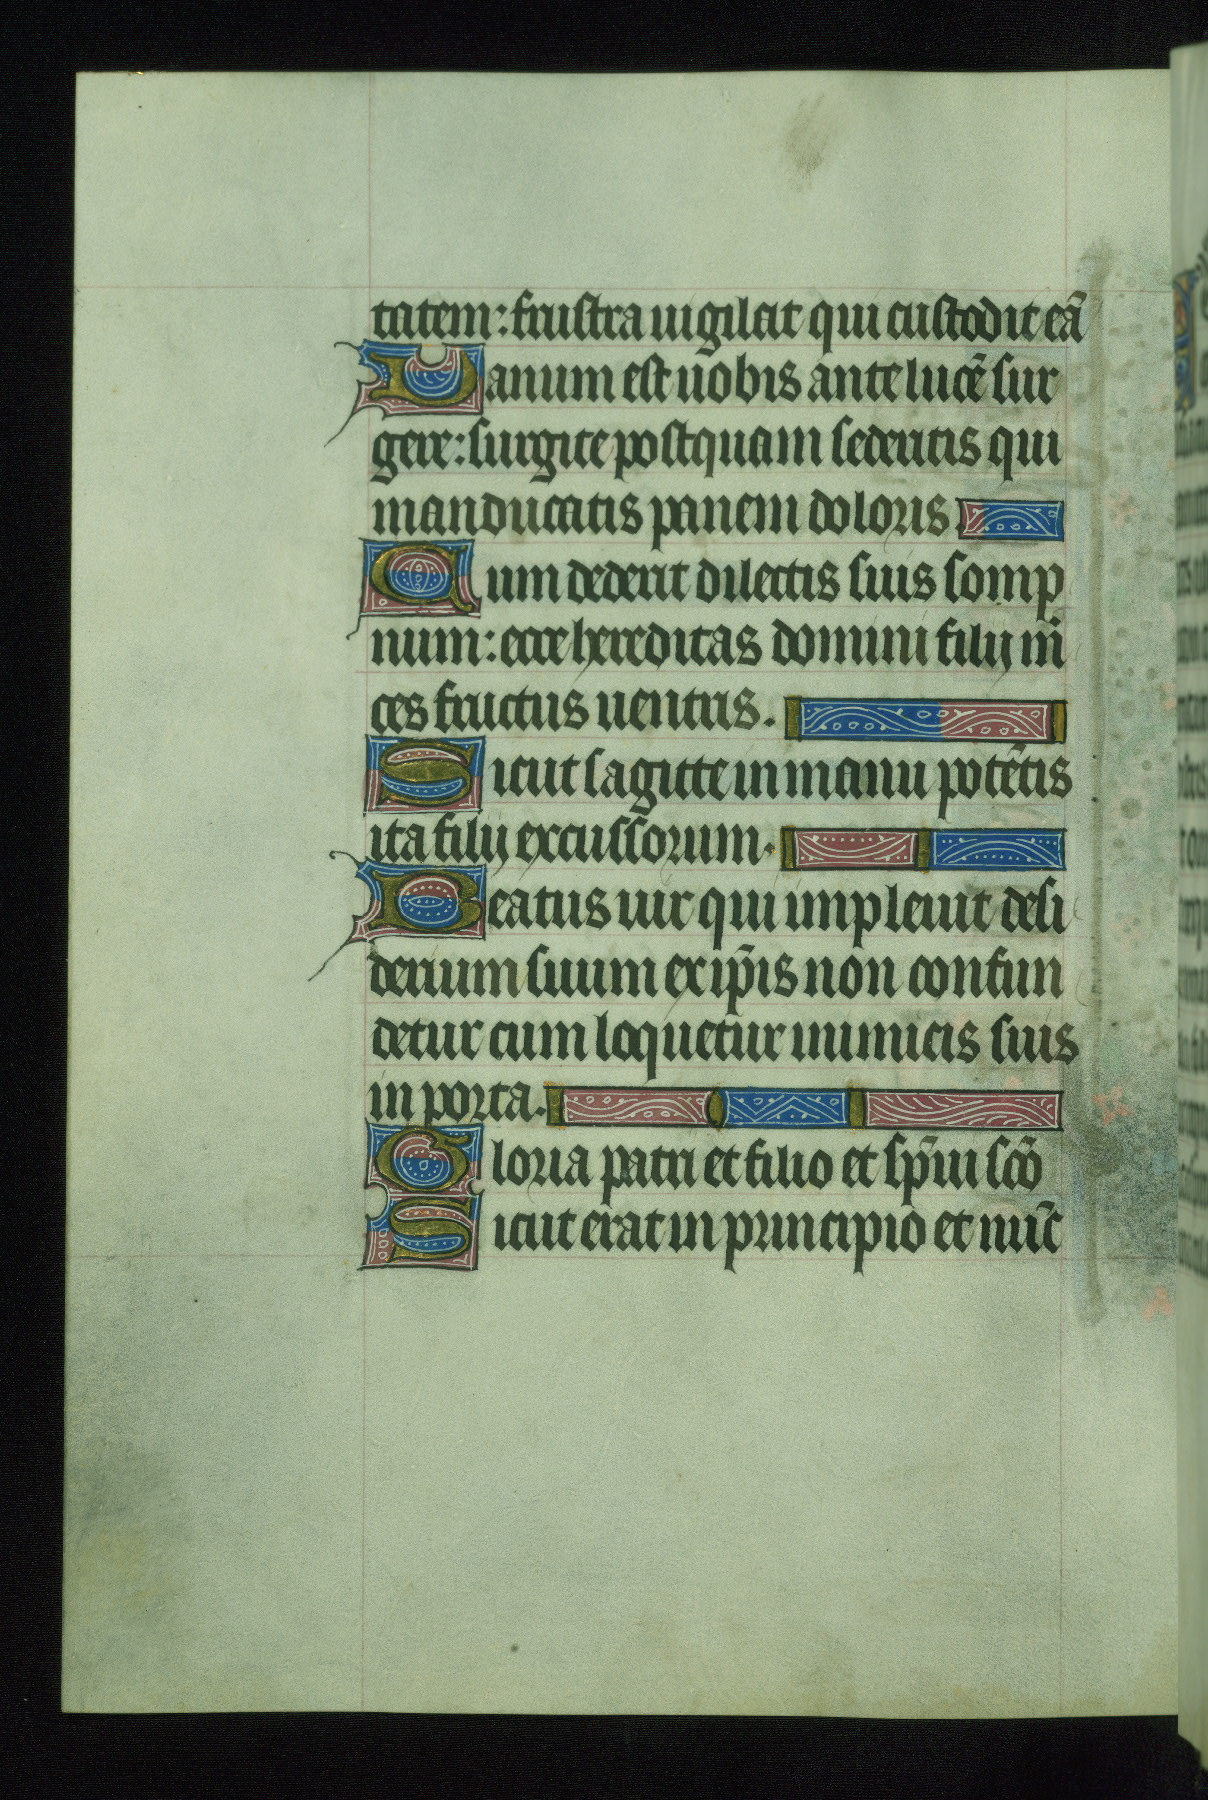 tatem: frustra uigilat qui custodit eā
Vanum est uobis ante lucē sur
gere: surgite postquam sederitis qui
manducatis panem doloris
Cum dederit dilectis suis somp
num: ecce hereditas domini filij m̄
ces fructus uentris.
Sicut sagitte in manu potētis
ita filij excussorum.
Beatus uir qui impleuit desi
derium suum ex ip̄is non confun
detur cum loquetur inimicis suis
in porta.
Gloria patri et filio et sp̄iui scō
Sicut erat in principio et nūc